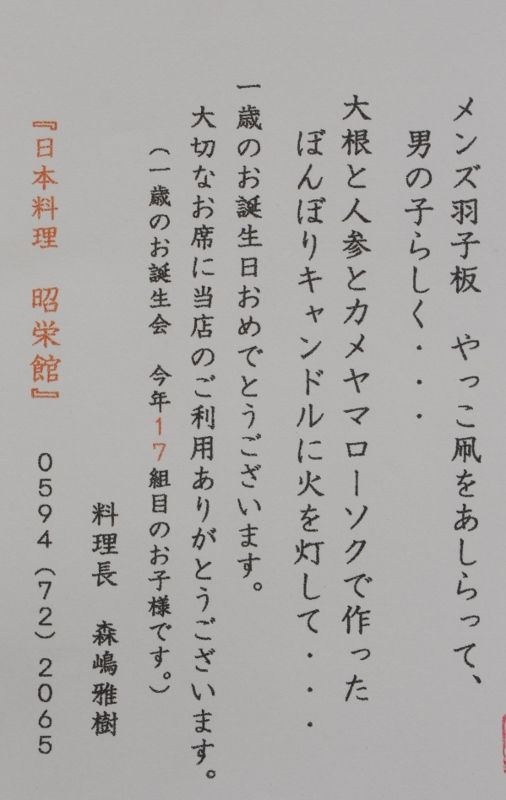 メンズ羽子板　やっこ凧をあしらって、
男の子らしく・・・
大根と人参とカメヤマローソクで作った
ぼんぼりキャンドルに火を灯して・・・
一歳のお誕生日おめでとうございます。
大切なお席に当店のご利用ありがとうございます。
（一歳のお誕生会　今年１７組目のお子様です。）
料理長　森嶋雅樹
『日本料理　昭栄館』　０５９４（７２）２０６５